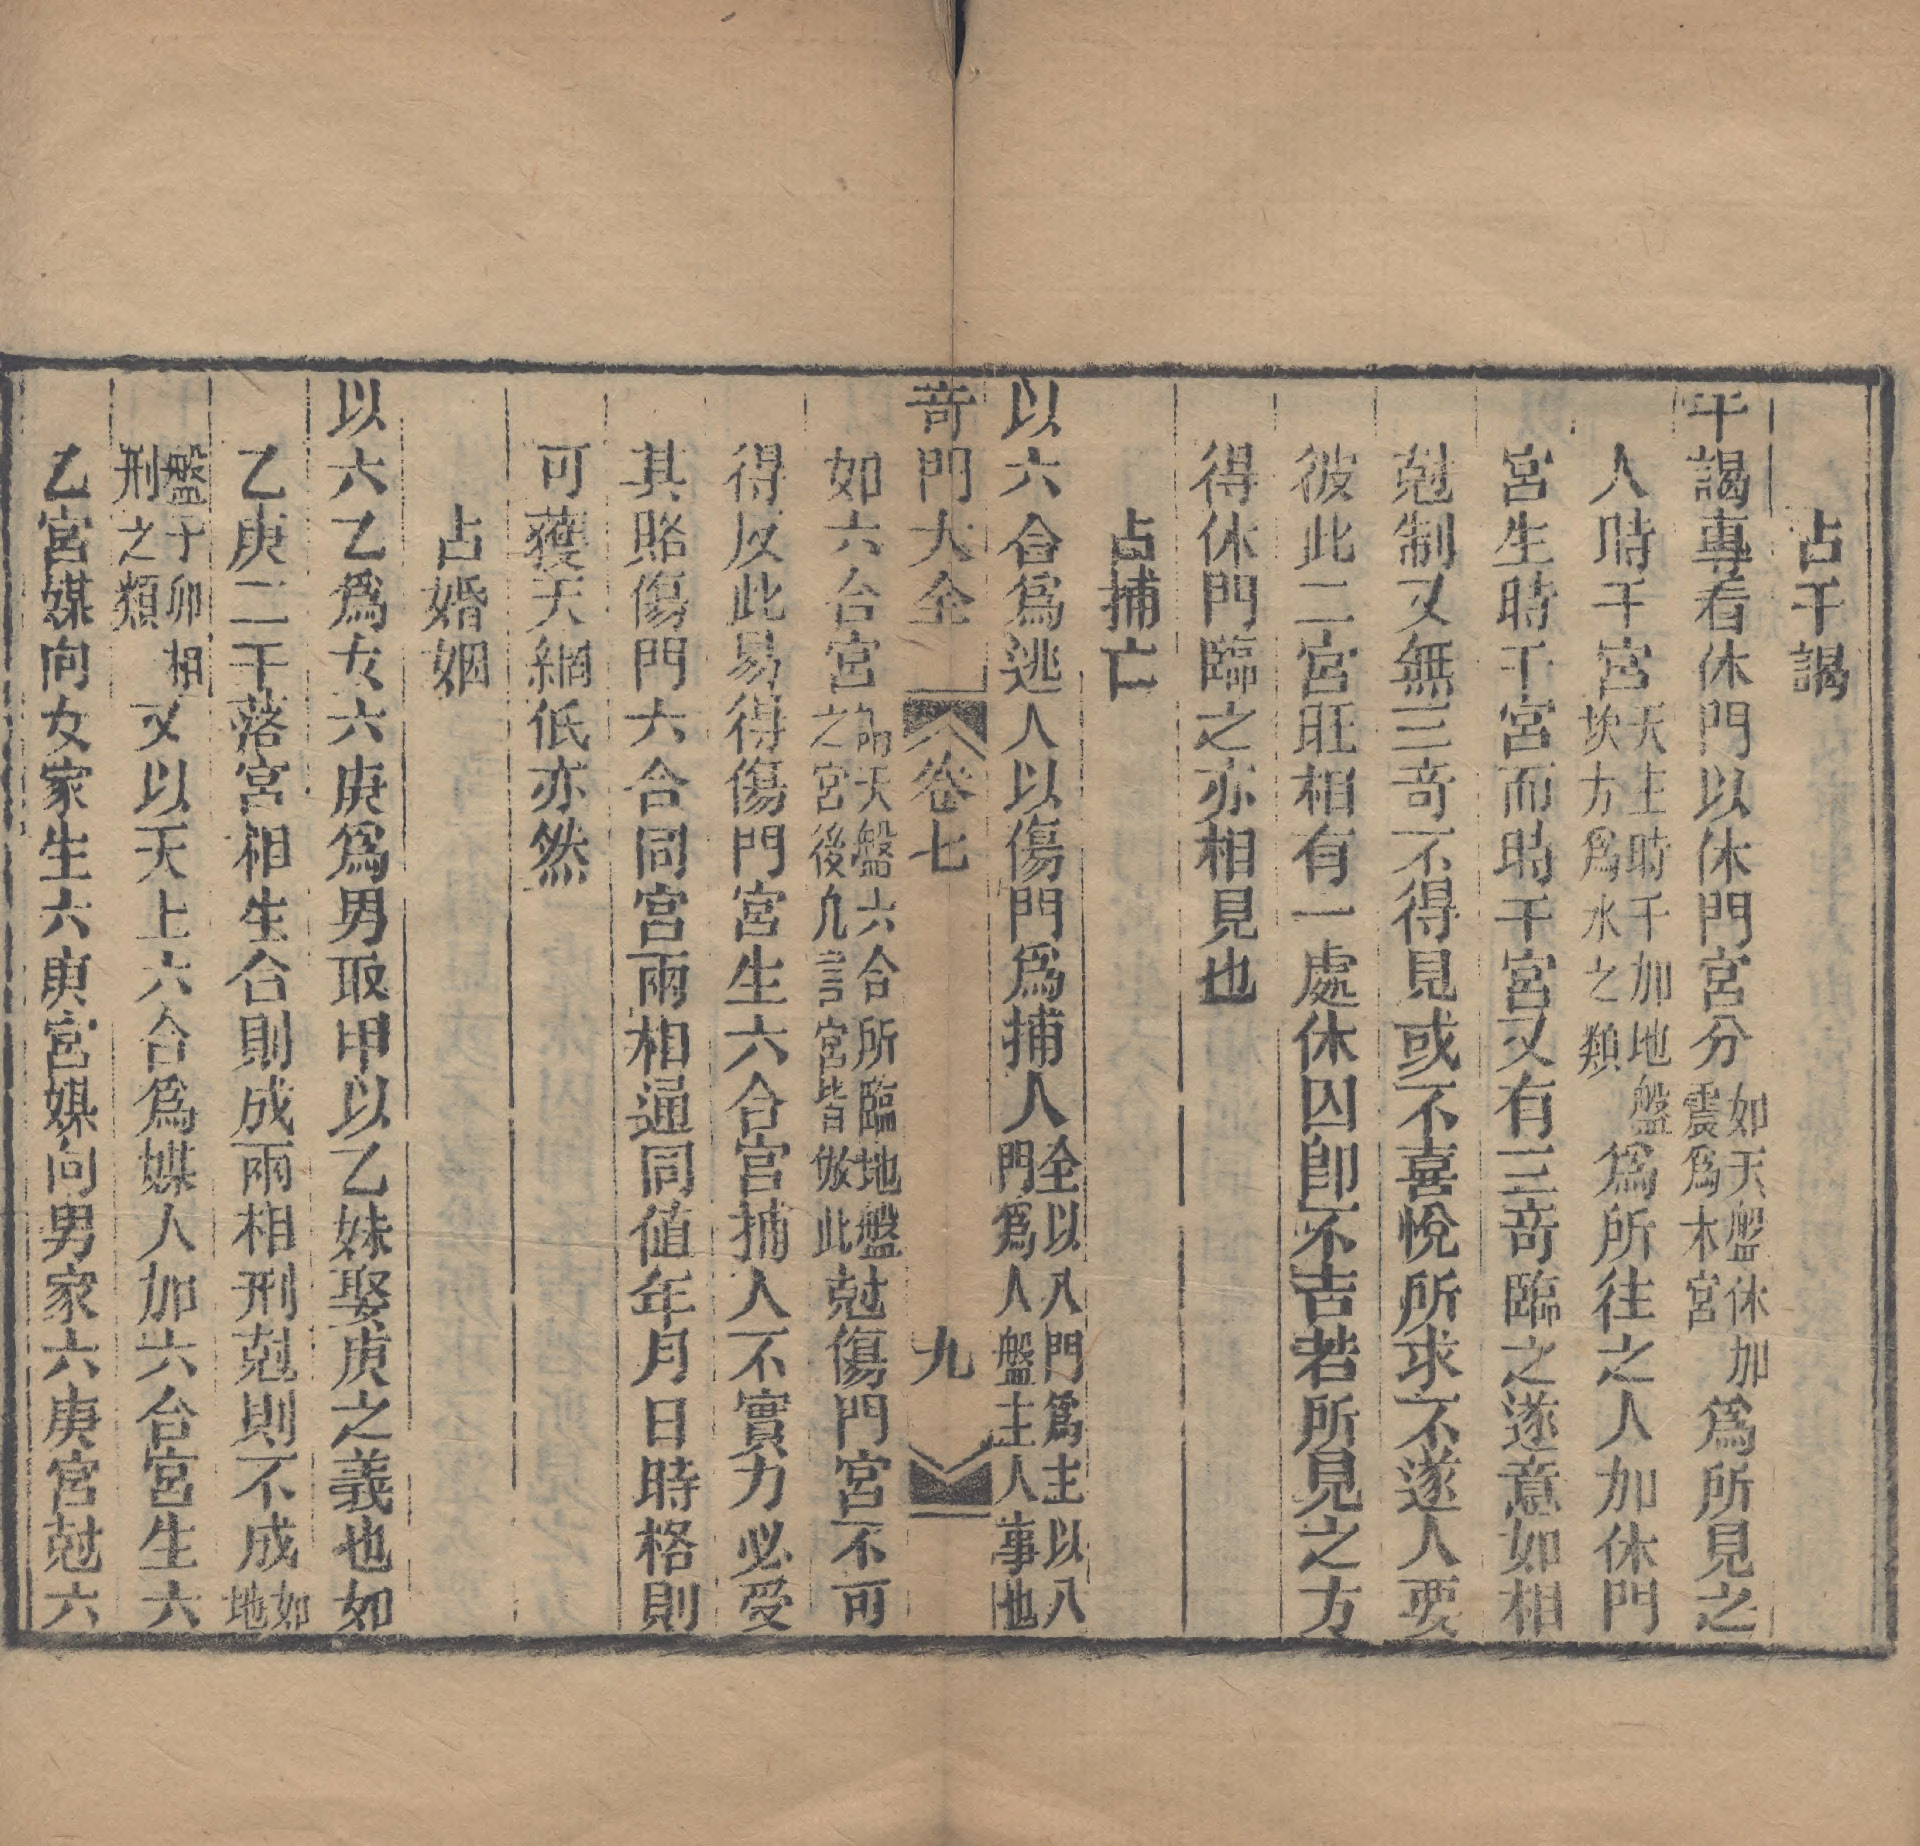 占干謁
干謁專看休門以休門宮分如天盤休加震爲木宮爲所見之
人時干宮天主時干加地盤坎方爲水之類爲所往之人加休門
宮生時干宮而時干宮又有三竒臨之遂意如相
尅制又無三竒不得見或不喜悅所求不遂人要
彼此二宮旺相有一處休囚卽不吉若所見之方
得休門臨之亦相見也
占捕亡
以六合爲逃人以傷門爲捕人全以八門爲主以八門爲人盤主人事也
竒門大全 卷七 九
如六合宮謂天盤六合所臨地盤之宮後凡言宮皆倣此尅傷門宮不可
得反此易得傷門宮生六合宮捕人不實力必受
其賂傷門六合同宮兩相通同值年月日時格則
可獲天網低亦然
占婚姻
以六乙爲女六庚爲男取甲以乙妹娶庚之義也如
乙庚二干落宮相生合則成兩相刑尅則不成如地
盤子卯相刑之類又以天上六合爲媒人加六合宮生六
乙宮媒向女家生六庚宮媒向男家六庚宮尅六